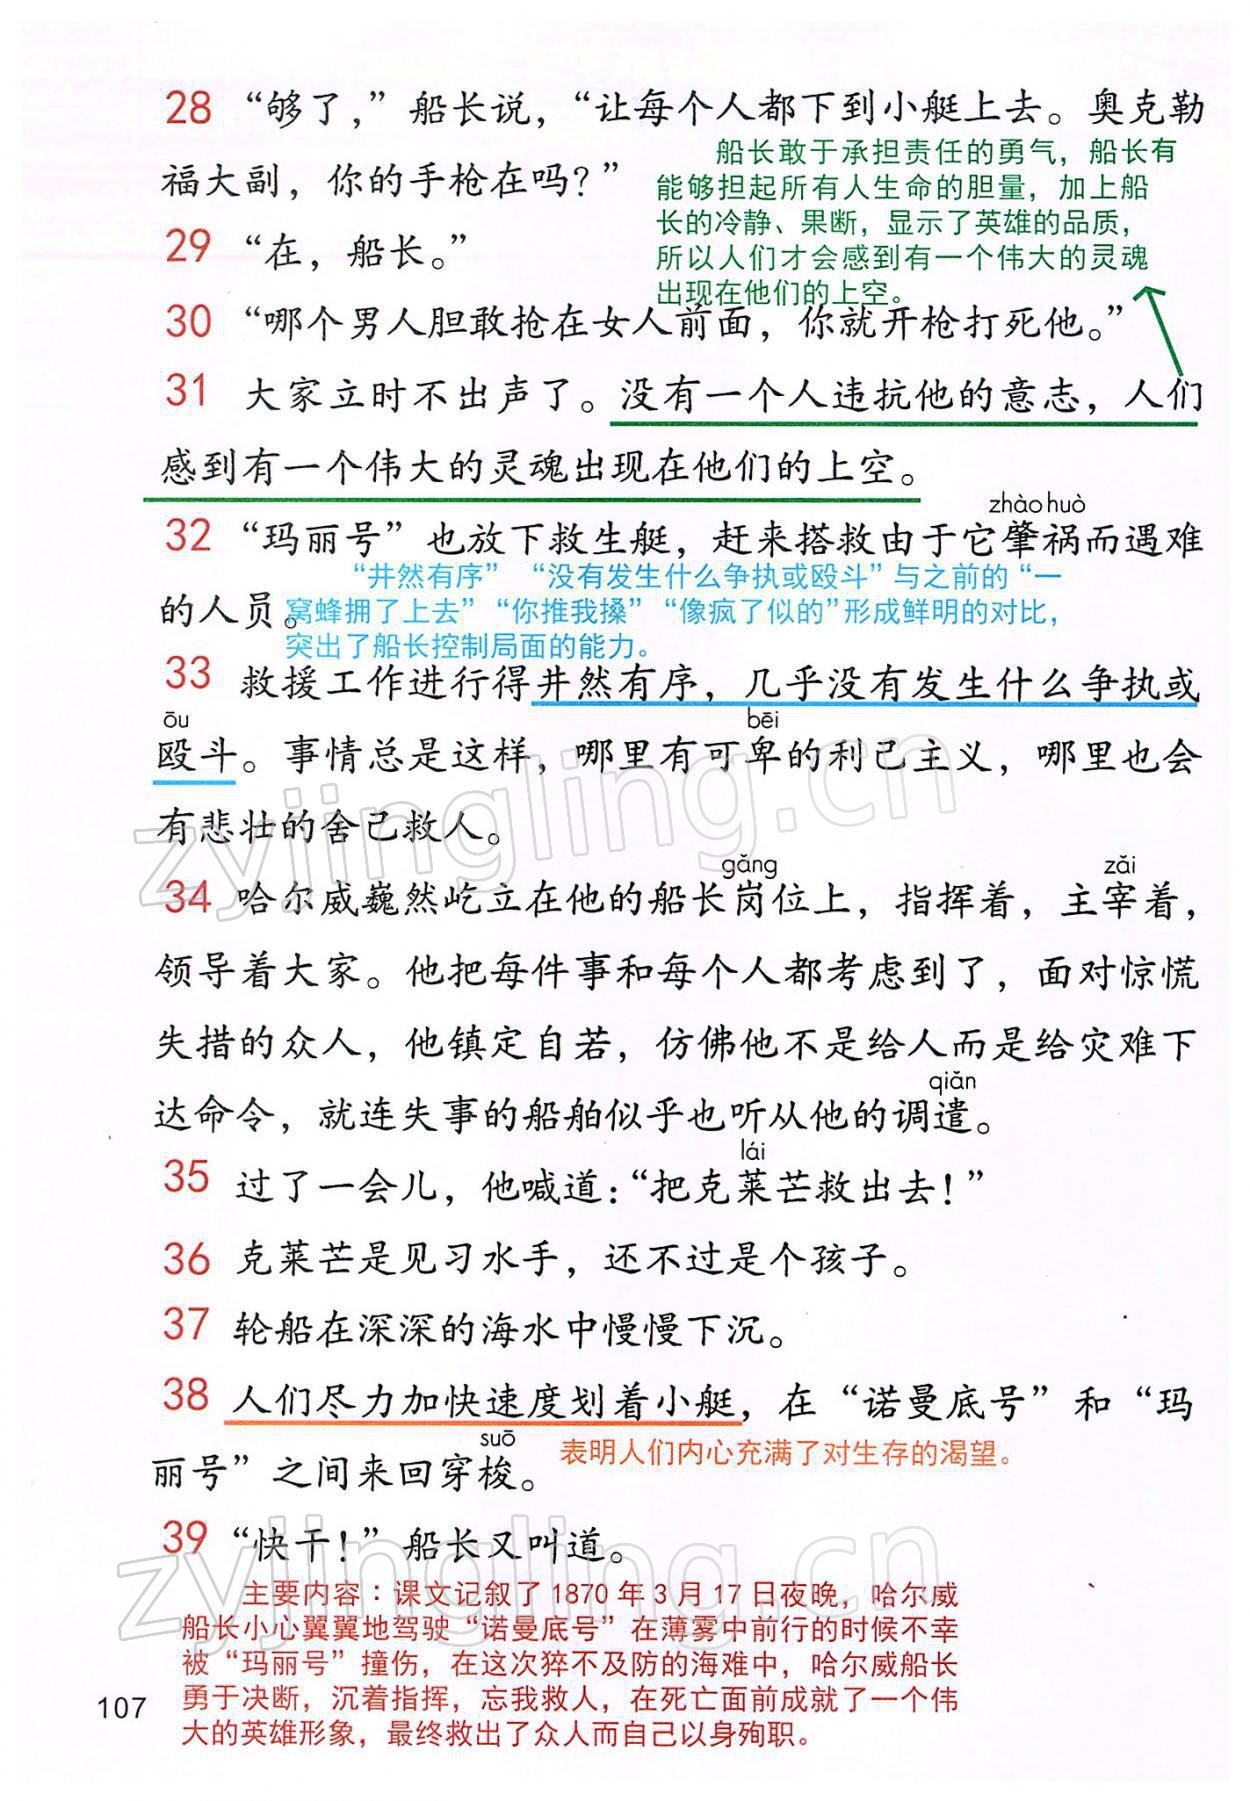 28 “够了，”船长说，“让每个人都下到小艇上去。奥克勒
船长敢于承担责任的勇气，船长有
福大副，你的手枪在吗？”
能够担起所有人生命的胆量，加上船
长的冷静、果断，显示了英雄的品质，
29 “在，船长。”
所以人们才会感到有一个伟大的灵魂
出现在他们的上空。
30 “哪个男人胆敢抢在女人前面，你就开枪打死他。”
31 大家立时不出声了。没有一个人违抗他的意志，人们
感到有一个伟大的灵魂出现在他们的上空。
zhào huò
32 “玛丽号”也放下救生艇，赶来搭救由于它肇祸而遇难
“井然有序”“没有发生什么争执或殴斗”与之前的“一
的人员。
窝蜂拥了上去”“你推我搡”“像疯了似的”形成鲜明的对比，
突出了船长控制局面的能力。
33 救援工作进行得井然有序，几乎没有发生什么争执或
ōu bēi
殴斗。事情总是这样，哪里有可卑的利己主义，哪里也会
有悲壮的舍己救人。
gǎng zǎi
34 哈尔威巍然屹立在他的船长岗位上，指挥着，主宰着，
领导着大家。他把每件事和每个人都考虑到了，面对惊慌
失措的众人，他镇定自若，仿佛他不是给人而是给灾难下
qiǎn
达命令，就连失事的船舶似乎也听从他的调遣。
lái
35 过了一会儿，他喊道：“把克莱芒救出去！”
36 克莱芒是见习水手，还不过是个孩子。
37 轮船在深深的海水中慢慢下沉。
38 人们尽力加快速度划着小艇，在“诺曼底号”和“玛
suō
表明人们内心充满了对生存的渴望。
丽号”之间来回穿梭。
39 “快干！”船长又叫道。
主要内容：课文记叙了1870年3月17日夜晚，哈尔威
船长小心翼翼地驾驶“诺曼底号”在薄雾中前行的时候不幸
被“玛丽号”撞伤，在这次猝不及防的海难中，哈尔威船长
勇于决断，沉着指挥，忘我救人，在死亡面前成就了一个伟
大的英雄形象，最终救出了众人而自己以身殉职。
107
zyjingling.cn
zyjingling.cn